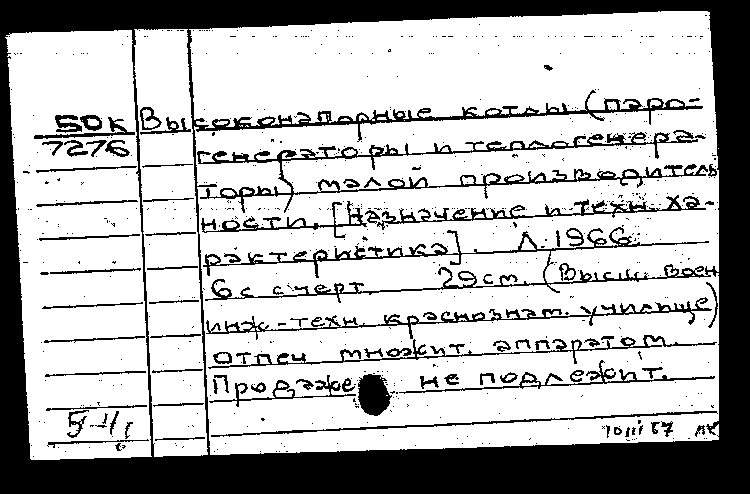 БОК Высоконапорные котлы (паро-
7276 генераторы и теплогенера-
торы) малой производитель
ности. [Назначение и техн. ха-
рактеристика]. Л. 1966.
6 с с черт. 29 см. (Высш. воен
инж.-техн. краснознам. училище)
Отпеч множит. аппаратом.
Продаже не подлежит.
10 III 67